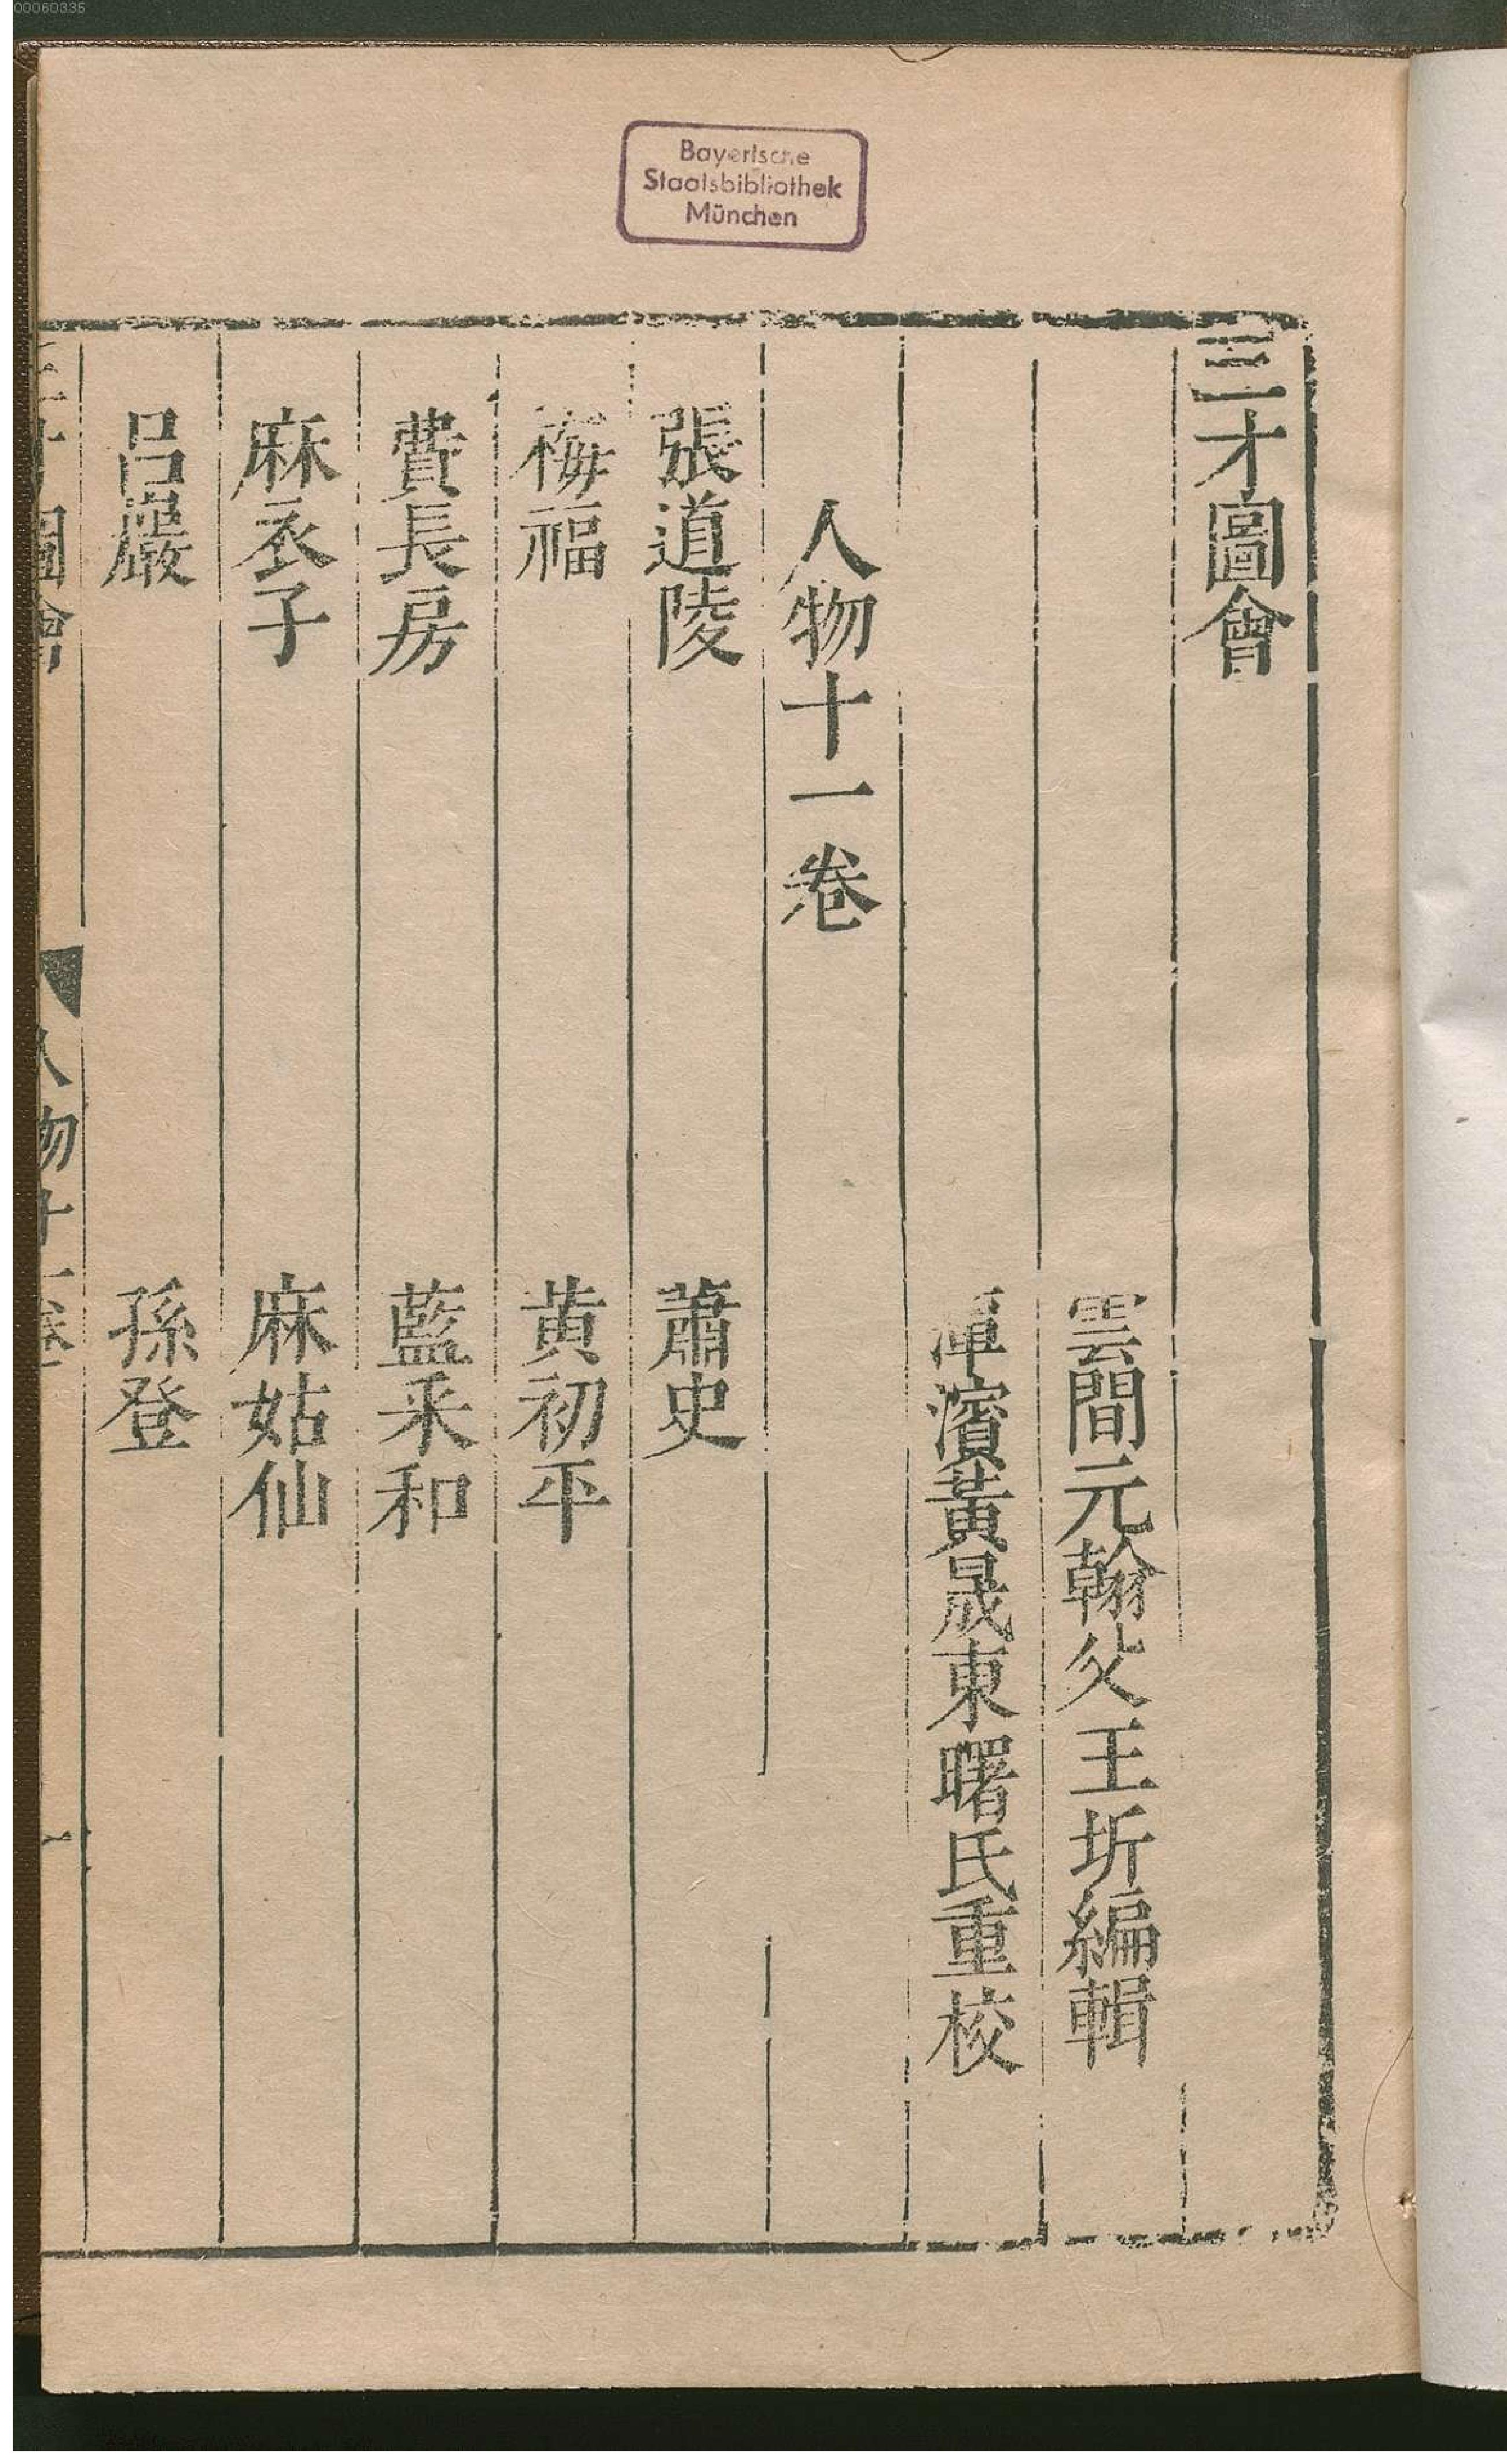 00060335
Bayerische
Staatsbibliothek
München
三才圖會
雲間元翰父王圻編輯
潭濱黃晟東曙氏重校
人物十一卷
張道陵 蕭史
梅福 黃初平
費長房 藍采和
麻衣子 麻姑仙
呂巖 孫登
三才圖會 人物十一卷